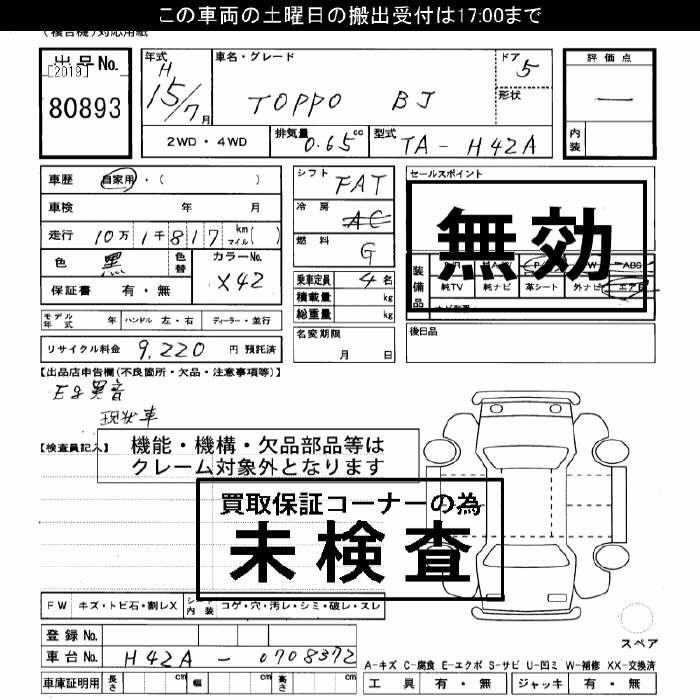 この車両の土曜日の搬出受付は17:00まで
(複合機)対応用紙
出品No.
[2019]
80893
年式
H
15/7月
車名・グレード
TOPPO BJ
ドア
5
形状
評価点
一
内装
2WD・4WD
排気量
0.65cc
型式
TA-H42A
車歴 自家用・( )
車検 年 月
走行 10万1千817 km マイル( )
色 黒 色替
カラーNo.
X42
保証書 有・無
シフト
FAT
冷房
AC
燃料
G
乗車定員 4名
積載量 kg
総重量 kg
セールスポイント
無効
装備品
ABS
純TV 純ナビ 革シート 外ナビ エアB
モデル年式 年 ハンドル 左・右 ディーラー・並行
名変期限
月 日
後日品
リサイクル料金 9,220 円 預託済
【出品店申告欄(不良箇所・欠品・注意事項等)】
Eg異音
現状車
【検査員記入】
機能・機構・欠品部品等は
クレーム対象外となります
買取保証コーナーの為
未検査
FW キズ・トビ石・割レX シート内装 コゲ・穴・汚レ・シミ・破レ・スレ
スペア
登録No.
車台No. H42A-0708372
A-キズ C-腐食 E-エクボ S-サビ U-凹ミ W-補修 XX-交換済
車庫証明用 長さ cm 幅 cm 高さ cm
工具 有・無 ジャッキ 有・無